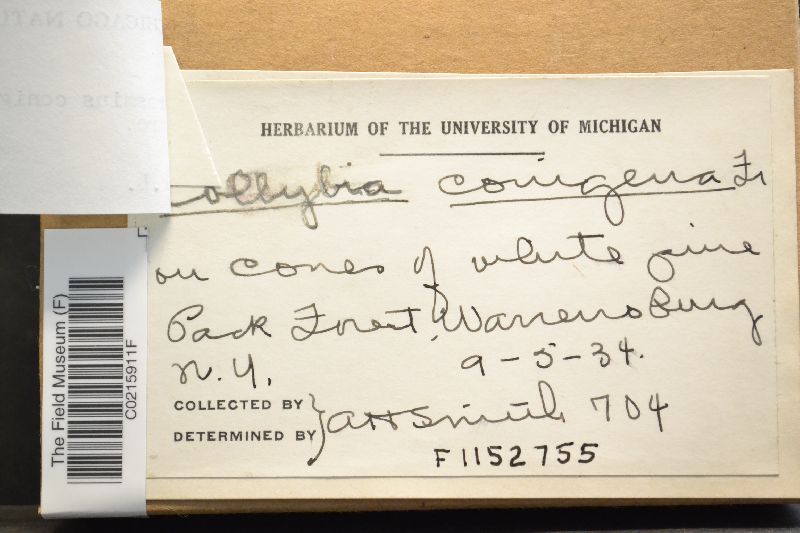 HERBARIUM OF THE UNIVERSITY OF MICHIGAN
Collybia conigena Fr
on cones of white pine
Pack Forest, Warrensburg
N.Y. 9-5-34.
COLLECTED BY
DETERMINED BY
AHSmith 704
F1152755
The Field Museum (F)
C0215911F